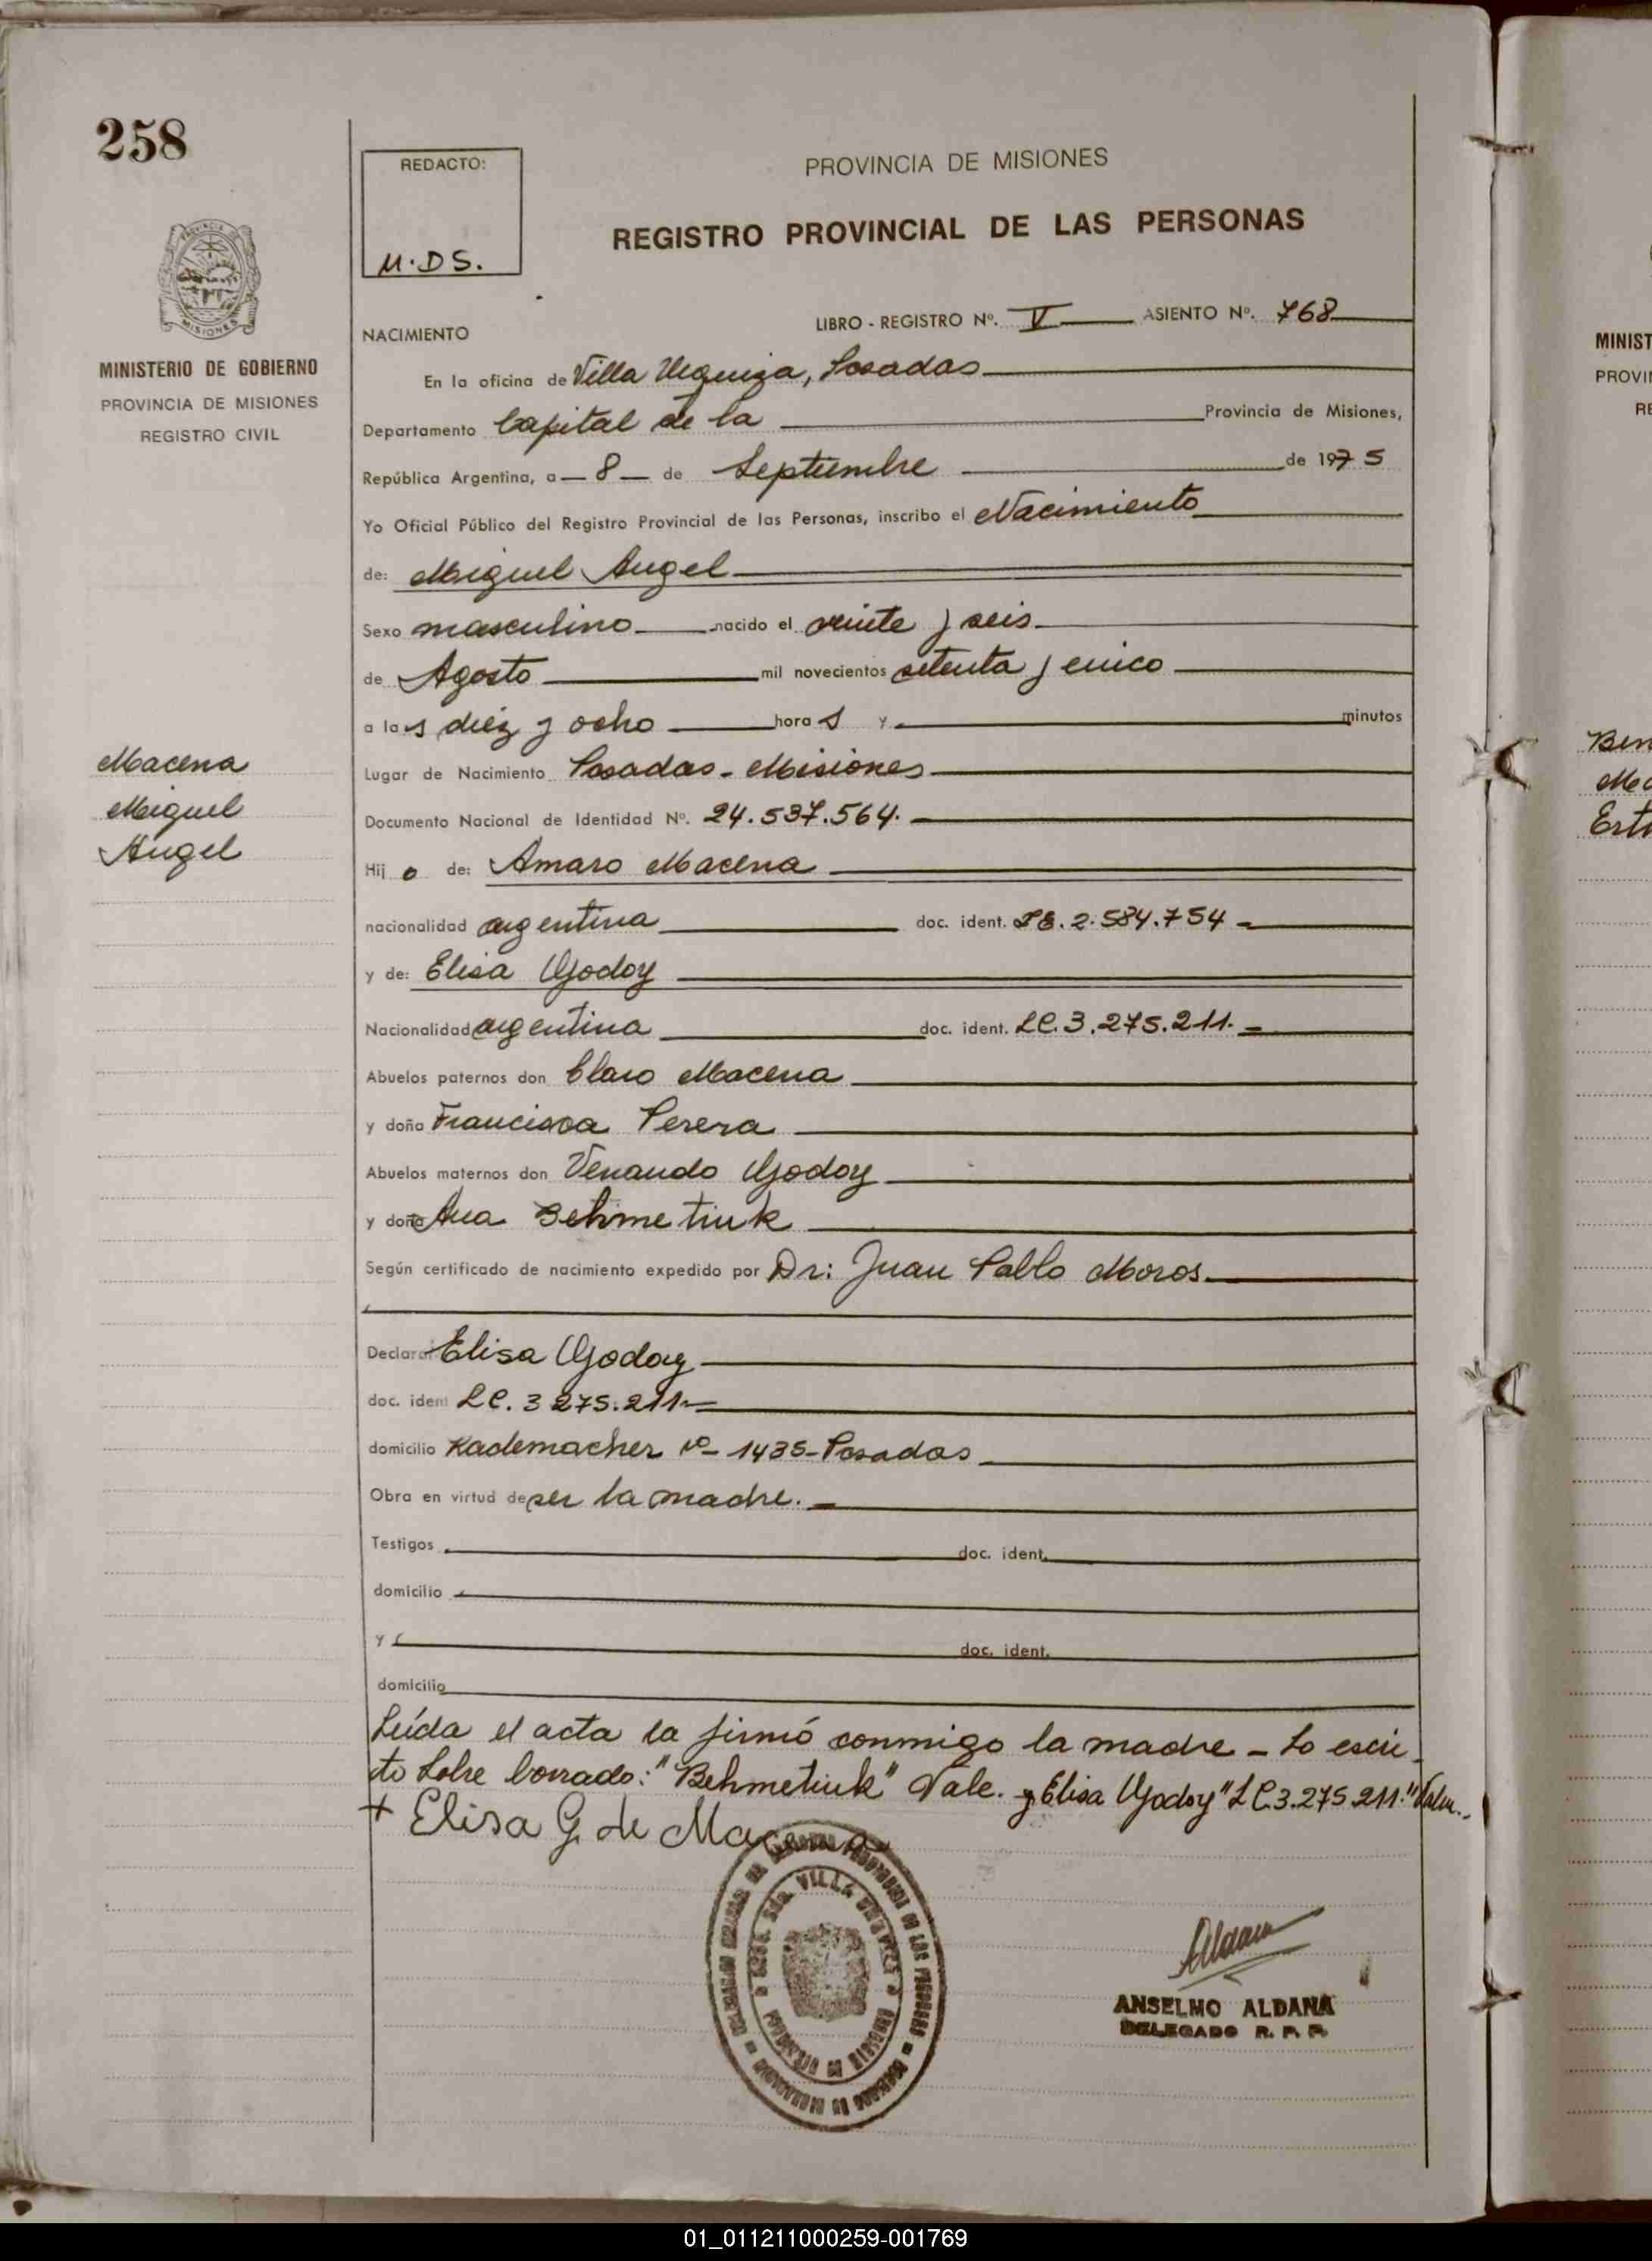 258
REDACTO:
M.DS.
PROVINCIA DE MISIONES
REGISTRO PROVINCIAL DE LAS PERSONAS
PROVINCIA
MISIONES
MINISTERIO DE GOBIERNO
PROVINCIA DE MISIONES
REGISTRO CIVIL
NACIMIENTO
LIBRO - REGISTRO Nº. V ASIENTO Nº. 768
En la oficina de Villa Urquiza, Posadas
Departamento Capital de la Provincia de Misiones,
República Argentina, a 8 de Septiembre de 1975
Yo Oficial Público del Registro Provincial de las Personas, inscribo el Nacimiento
de: Miguel Angel
Sexo masculino nacido el veinte y seis
de Agosto mil novecientos setenta y cinco
a las diez y ocho horas y minutos
Lugar de Nacimiento Posadas - Misiones
Macena
Miguel
Angel
Documento Nacional de Identidad Nº. 24.537.564.
Hijo de: Amaro Macena
nacionalidad argentina doc. ident. 2.584.754
y de: Elisa Godoy
Nacionalidad argentina doc. ident. LC. 3.275.211.
Abuelos paternos don Claro Macena
y doña Francisca Perera
Abuelos maternos don Venando Godoy
y doña Ana Behmetiuk
Según certificado de nacimiento expedido por Dr: Juan Pablo Moros
Declara: Elisa Godoy
doc. ident LC. 3 275.211
domicilio Rademacher Nº 1435 - Posadas
Obra en virtud de ser la madre.
Testigos doc. ident.
domicilio
y doc. ident.
domicilio
Leída el acta la firmó conmigo la madre - Lo escri-
to sobre borrado: "Behmetiuk" Vale. y "Elisa Godoy" "LC.3.275.211." Valen.
+ Elisa G. de Macena
VILLA URQUIZA
Aldana
ANSELMO ALDANA
DELEGADO R. P. P.
MINIST
PROVIN
RE
01_011211000259-001769